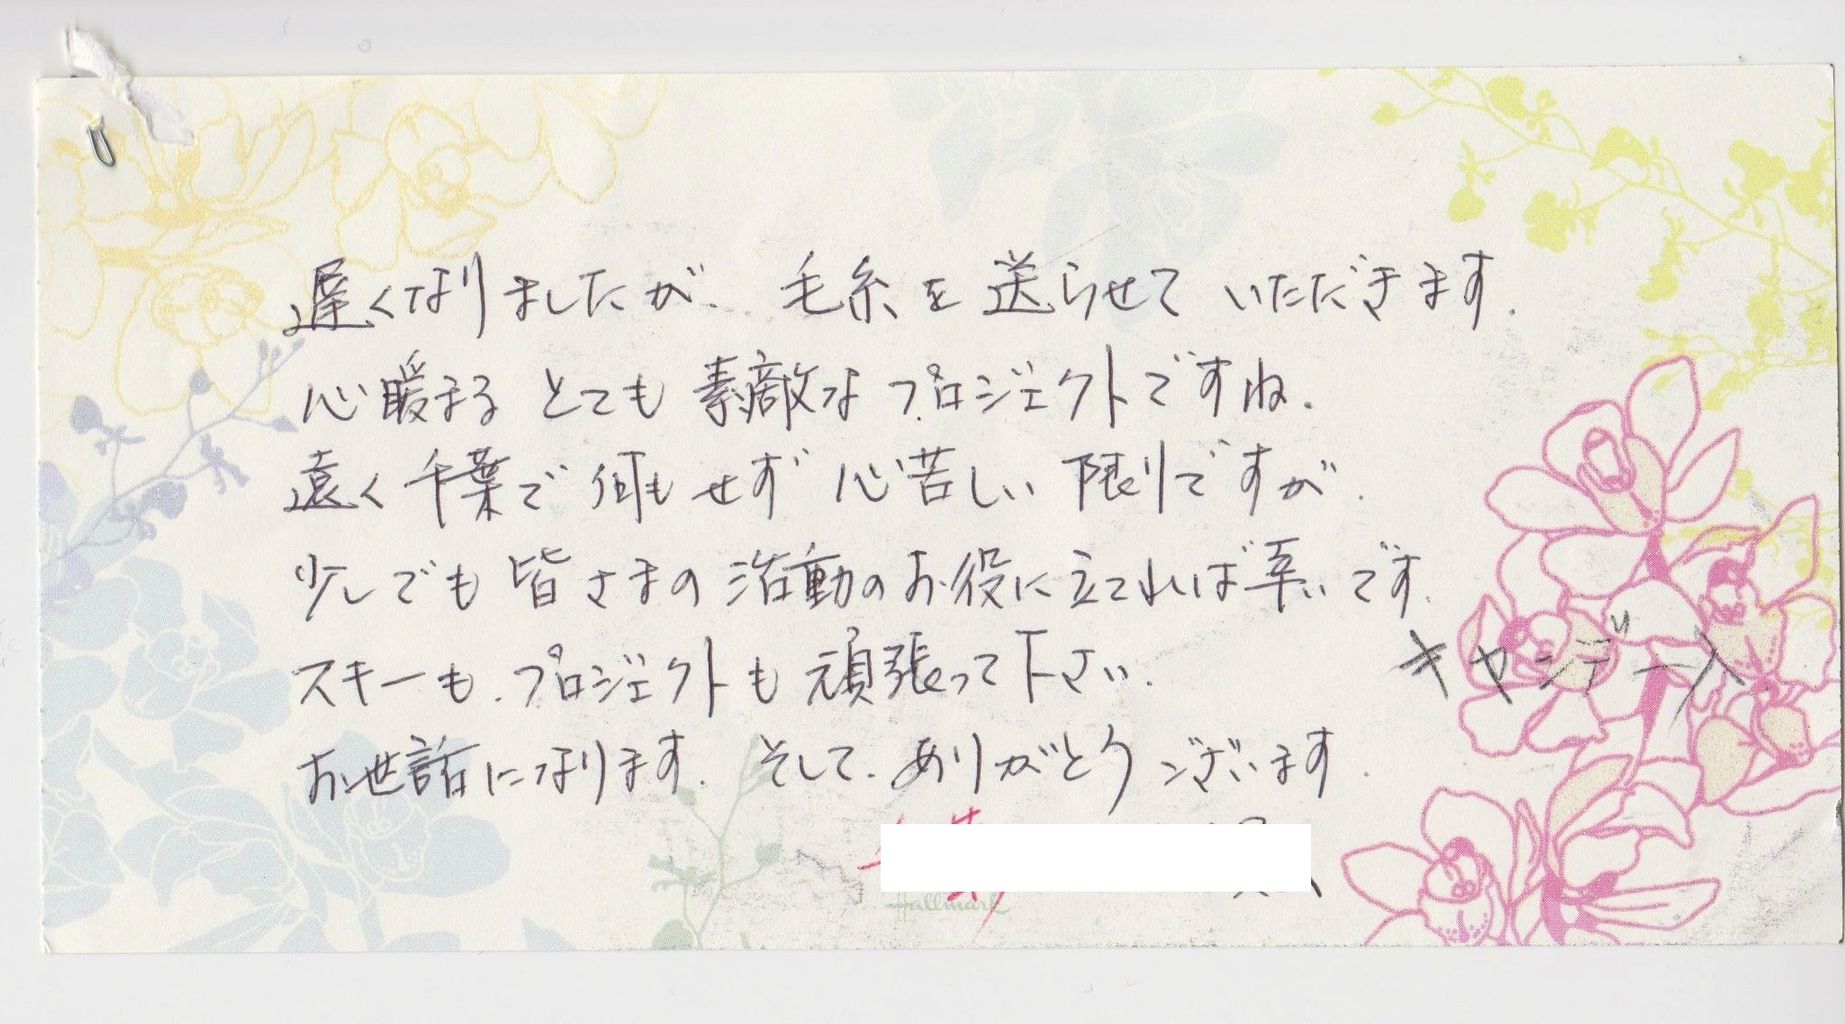 遅くなりましたが、毛糸を送らせていただきます。
心暖まるとても素敵なプロジェクトですね。
遠く千葉で何もせず心苦しい限りですが、
少しでも皆さまの活動のお役に立てれば幸いです。
スキーも、プロジェクトも頑張って下さい。
キャンデー入
お世話になります。そして、ありがとうございます。
Hallmark